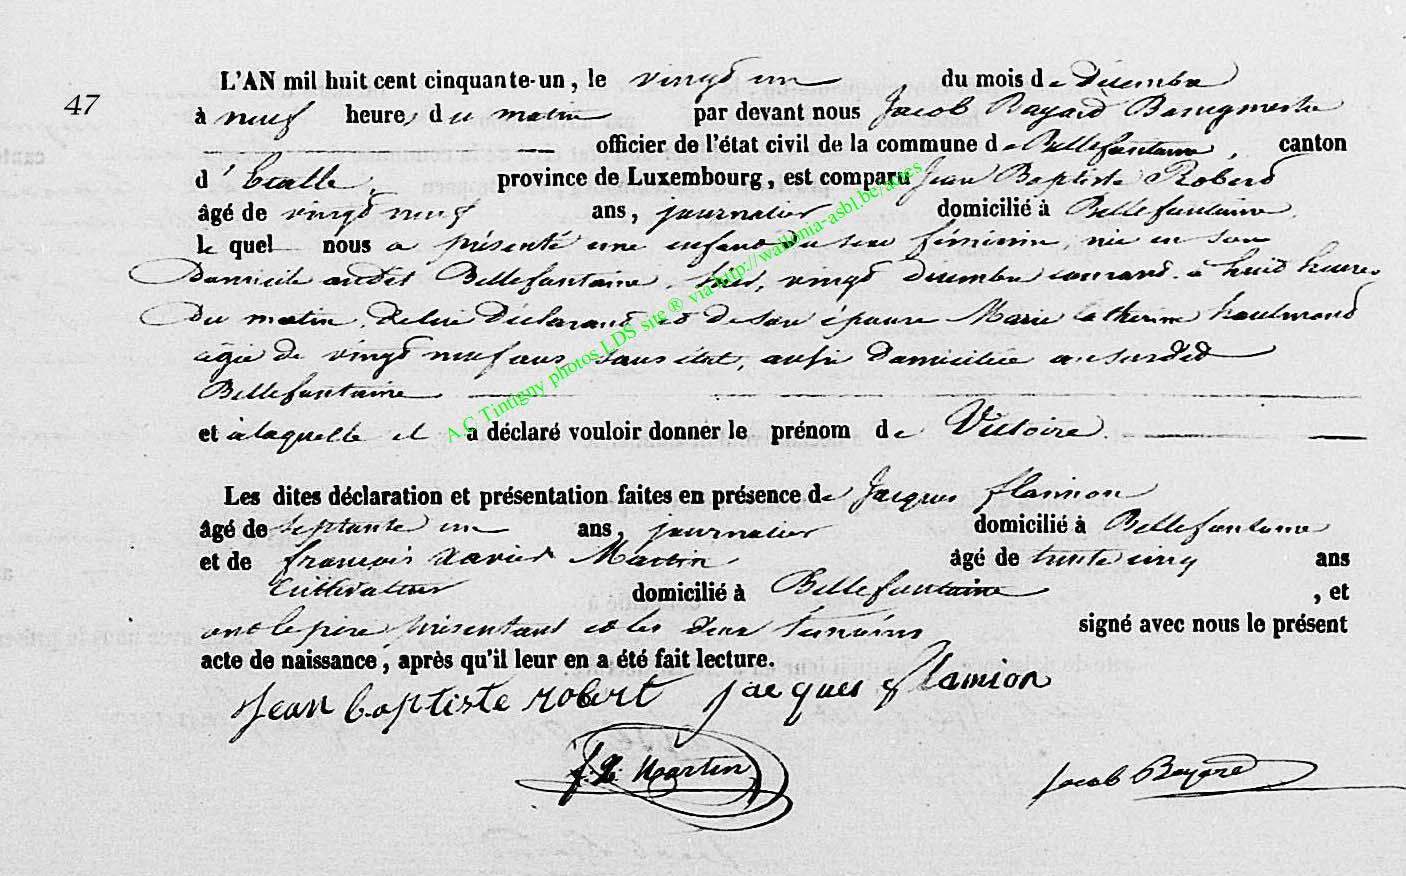 47
L'AN mil huit cent cinquante-un, le vingt un du mois de décembre
à neuf heures du matin par devant nous Jacob Bayard Bourgmestre
officier de l'état civil de la commune de Bellefontaine, canton
d'Etalle, province de Luxembourg, est comparu Jean Baptiste Robert
âgé de vingt neuf ans, journalier domicilié à Bellefontaine,
lequel nous a présenté une enfant du sexe féminin, née en son
domicile audit Bellefontaine, hier, vingt décembre courant à huit heures
du matin, de lui déclarant et de son épouse Marie Catherine haulmond
agée de vingt neuf ans, sans état, aussi domiciliée au susdit
Bellefontaine.
et à laquelle il a déclaré vouloir donner le prénom de Victoire.
Les dites déclaration et présentation faites en présence de Jacques flamion
âgé de septante un ans, journalier domicilié à Bellefontaine
et de françois Xavier Martin âgé de trente cinq ans
Cultivateur domicilié à Bellefontaine, et
ont le père présentant et les deux témoins signé avec nous le présent
acte de naissance, après qu'il leur en a été fait lecture.
Jean baptiste robert jacques flamion
f. X. Martin Jacob Bayard
A C Tintigny photos LDS site ® via http://wallonia-asbl.be/actes